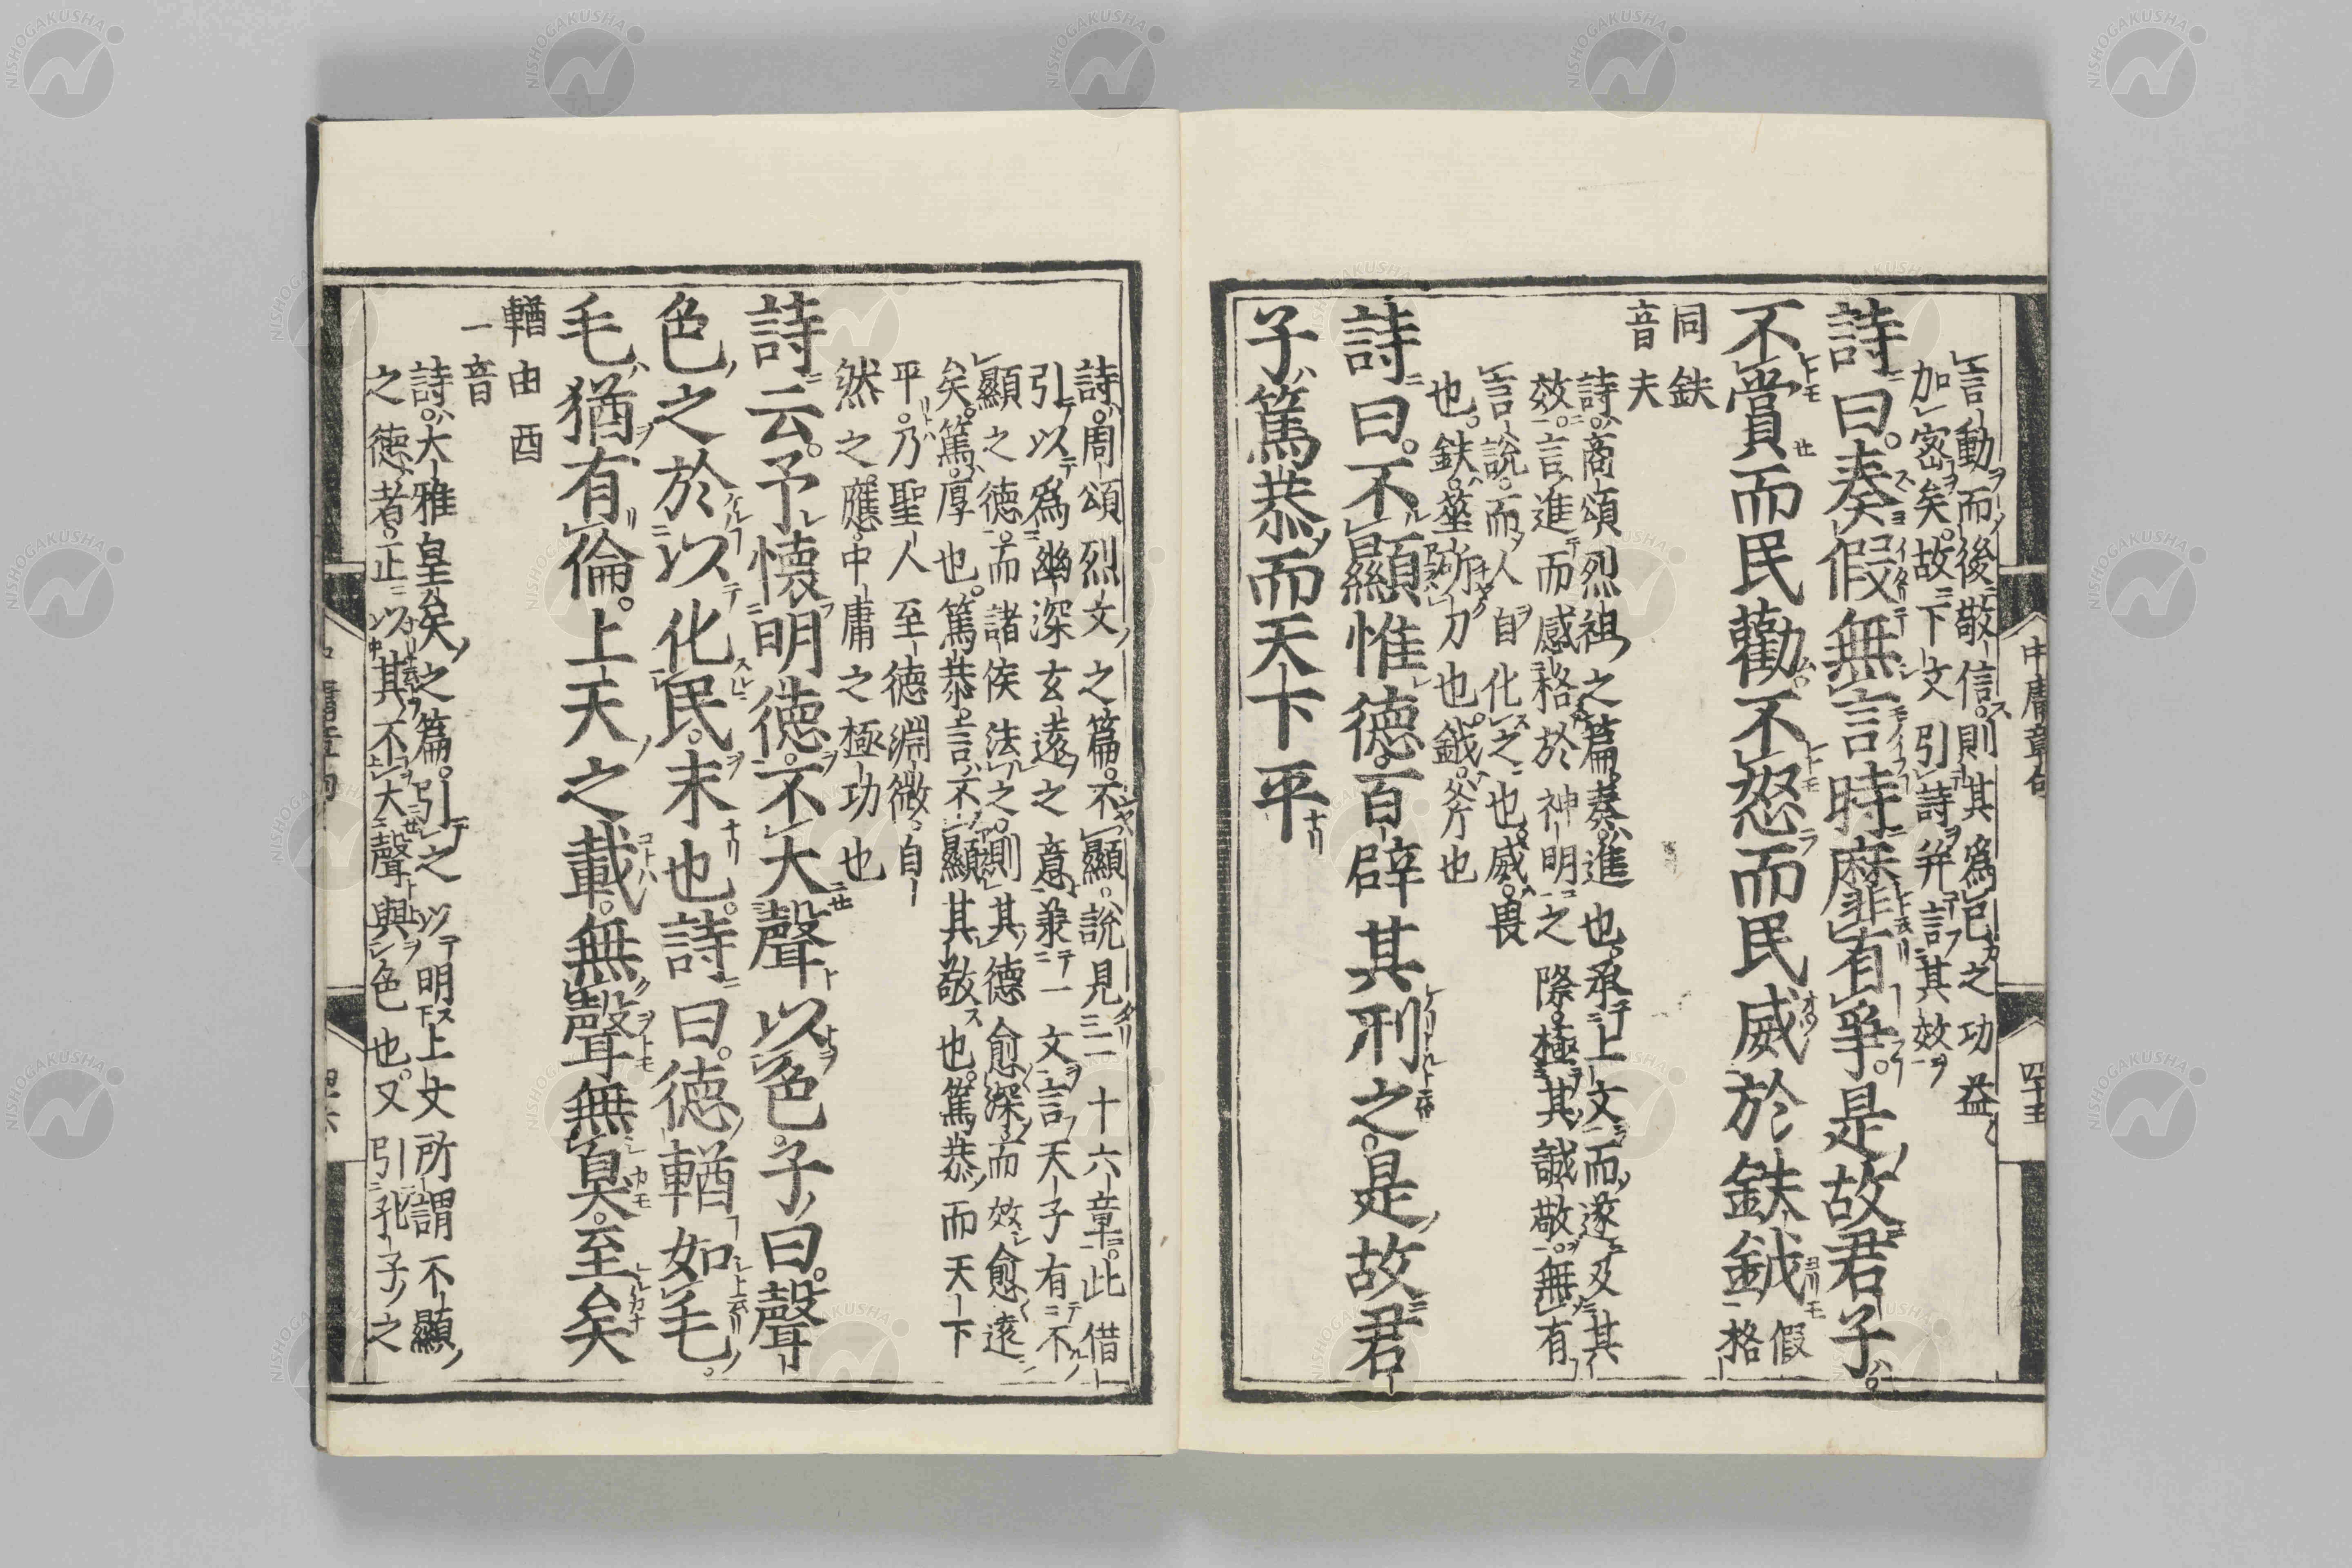 言動而後敬信則其爲己之功益
加密矣故下文引詩并言其效
詩曰奏假無言時靡有爭是故君子
不賞而民勸不怒而民威於鈇鉞假格
同鈇
音夫
詩商頌烈祖之篇奏進也承上文而遂及其
效言進而感格於神明之際極其誠敬無有
言說而人自化之也威畏
也鈇莝斫刀也鉞斧也
詩曰不顯惟德百辟其刑之是故君
子篤恭而天下平
中庸章句
詩周頌烈文之篇不顯說見二十六章此借
引以爲幽深玄遠之意兼上文言天子有不
顯之德而諸侯法之則其德愈深而效愈遠
矣篤厚也篤恭言不顯其敬也篤恭而天下
平乃聖人至德淵微自
然之應中庸之極功也
詩云予懷明德不大聲以色子曰聲
色之於以化民末也詩曰德輶如毛
毛猶有倫上天之載無聲無臭至矣
輶由酉
一音
詩大雅皇矣之篇引之以明上文所謂不顯
之德者正以其不大聲與色也又引孔子之